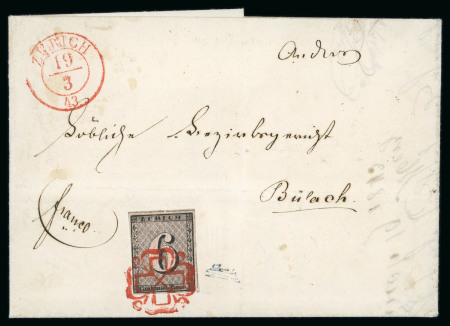 ZÜRICH
19
3
43
An das
Löbliche Bezirksgericht
Bülach.
franco.
ZÜRICH
6